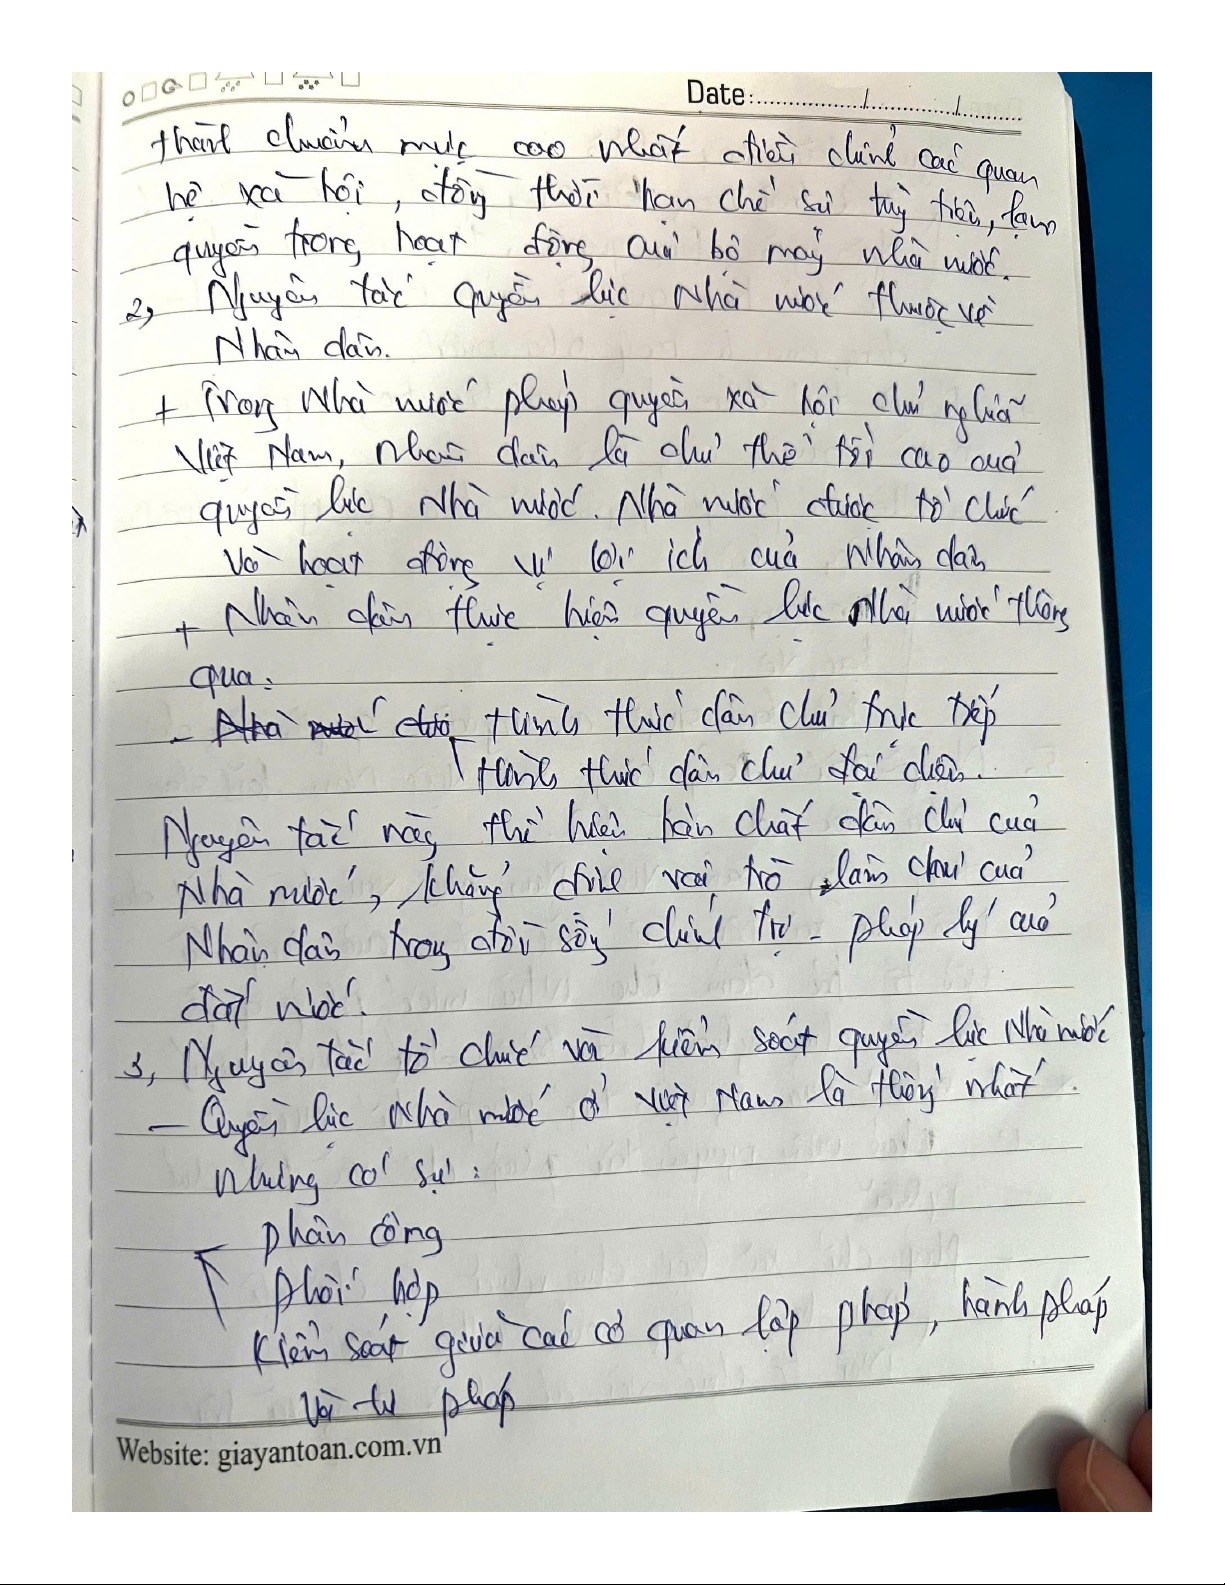 Date:............/............/............
thành chuẩn mực cao nhất điều chỉnh các quan
hệ xã hội, đồng thời hạn chế sự tùy tiện, lạm
quyền trong hoạt động của bộ máy nhà nước.
2, Nguyên tắc quyền lực Nhà nước thuộc về
Nhân dân.
+ Trong Nhà nước pháp quyền xã hội chủ nghĩa
Việt Nam, nhân dân là chủ thể tối cao của
quyền lực Nhà nước. Nhà nước được tổ chức
và hoạt động vì lợi ích của Nhân dân
+ Nhân dân thực hiện quyền lực Nhà nước thông
qua:
- hình thức dân chủ trực tiếp
hình thức dân chủ đại diện.
Nguyên tắc này thể hiện bản chất dân chủ của
Nhà nước, khẳng định vai trò làm chủ của
Nhân dân trong đời sống chính trị - pháp lý của
đất nước.
3, Nguyên tắc tổ chức và kiểm soát quyền lực Nhà nước
- Quyền lực Nhà nước ở Việt Nam là thống nhất.
nhưng có sự:
phân công
phối hợp
kiểm soát giữa các cơ quan lập pháp, hành pháp
và tư pháp
Website: giayantoan.com.vn